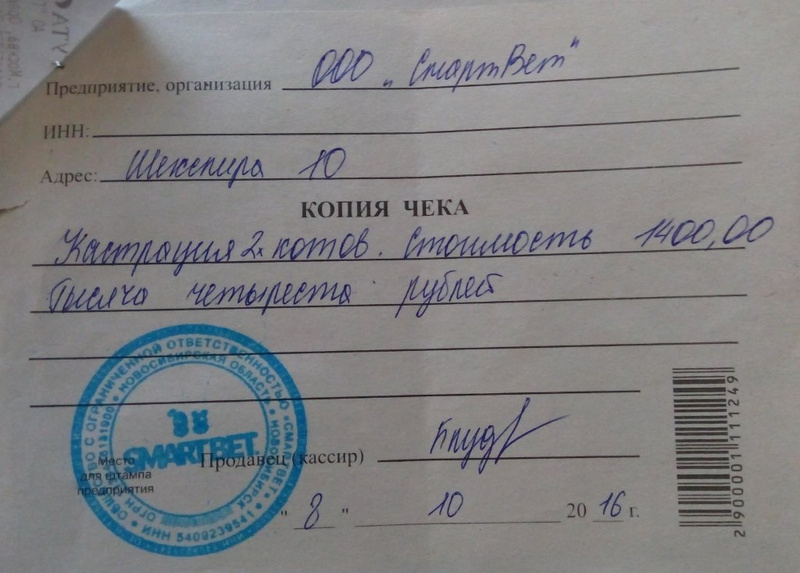 Предприятие, организация ООО „СмартВет"
ИНН:
Адрес: Шекспира 10
КОПИЯ ЧЕКА
Кастрация 2х котов. Стоимость 1400,00
Тысяча четыреста рублей
ОБЩЕСТВО С ОГРАНИЧЕННОЙ ОТВЕТСТВЕННОСТЬЮ «СМАРТВЕТ»
НОВОСИБИРСКАЯ ОБЛАСТЬ • НОВОСИБИРСК
ОГРН
ИНН 5409239541
SMARTВЕТ
Место для штампа предприятия
Продавец (кассир)
"8" 10 2016 г.
2900001111249